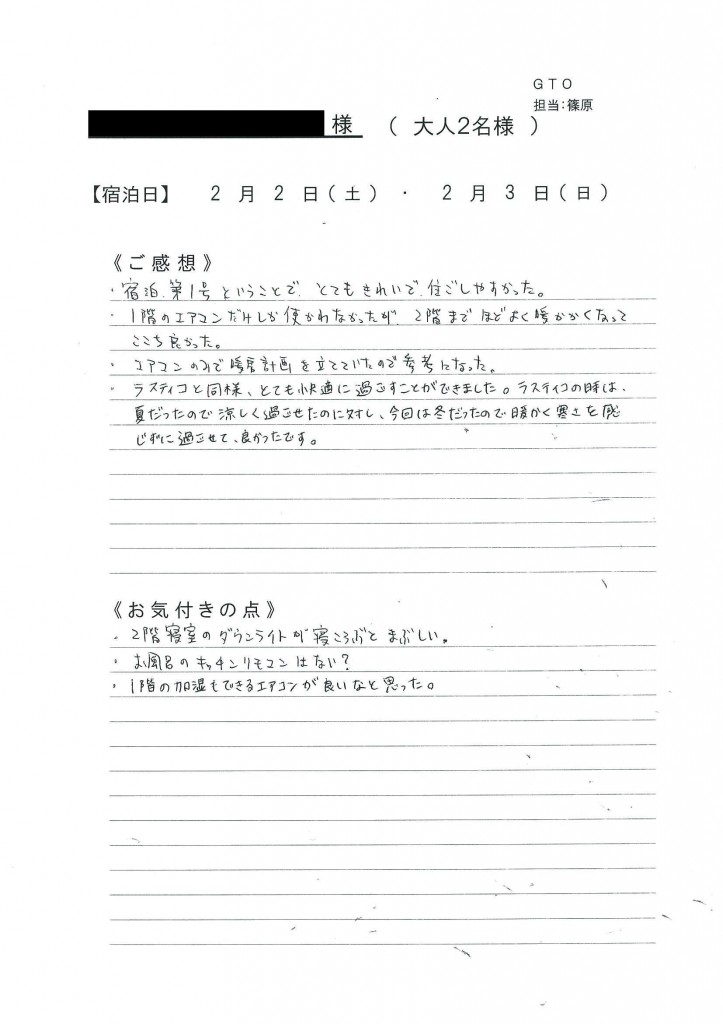 GTO
担当:篠原
様 ( 大人2名様 )
【宿泊日】 2 月 2 日(土) ・ 2 月 3 日(日)
《ご感想》
・宿泊、第1号ということで、とてもきれいで、住ごしやすかった。
・1階のエアコンだけしか使かわなかったが、2階までほどよく暖かかくなって
ここち良かった。
・エアコンのみで暖房計画を立てていたので参考になった。
・ラスティコと同様、とても快適に過ごすことができました。ラスティコの時は、
夏だったので涼しく過ごせたのに対し、今回は冬だったので暖かく寒さを感
じずに過ごせて、良かったです。
《お気付きの点》
・2階寝室のダウンライトが寝ころぶとまぶしい。
・お風呂のキッチンリモコンはない?
・1階の加湿もできるエアコンが良いなと思った。